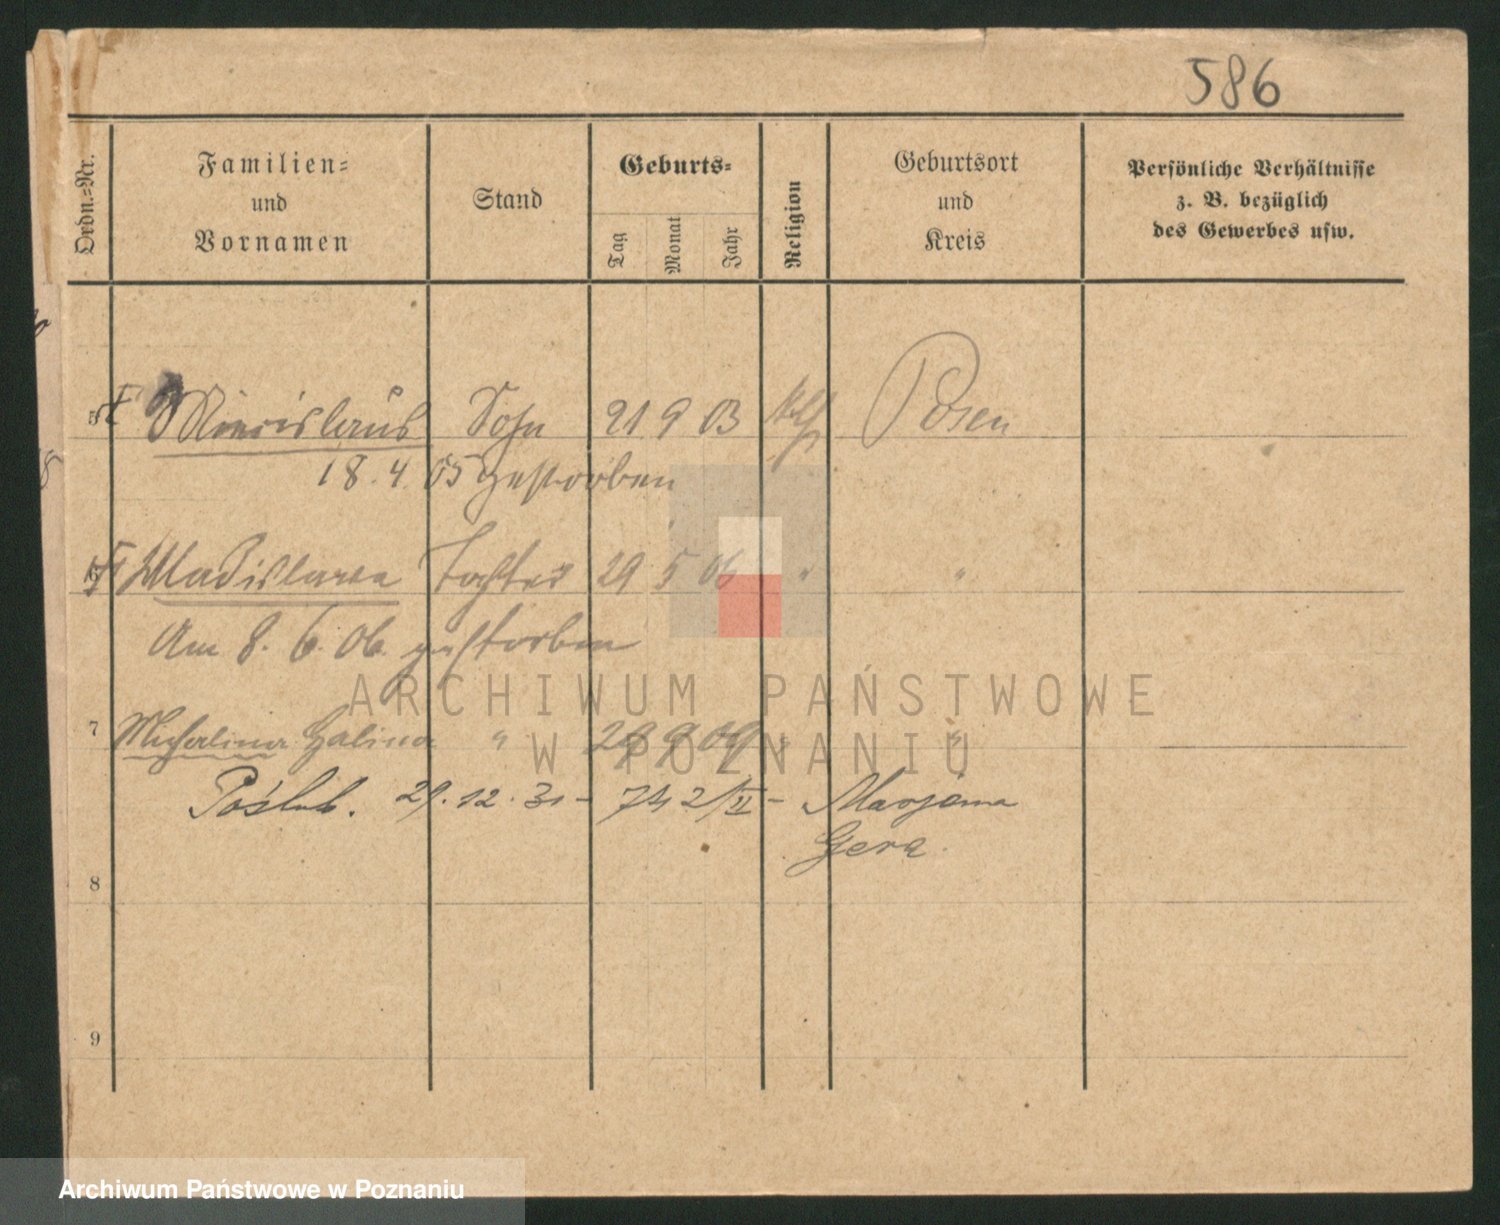 586
Ordn.=Nr.
Familien=
und
Vornamen
Stand
Geburts=
Tag
Monat
Jahr
Religion
Geburtsort
und
Kreis
Persönliche Verhältnisse
z. B. bezüglich
des Gewerbes usw.
5 Miecislaus Sohn 21 9 03 kth Posen
18. 4. 05 gestorben
6 Wladislawa Tochter 29 5 06 " "
Am 8. 6. 06. gestorben
7 Michalina Halina " 29 9 09 " "
Poślub. 29. 12. 31 - 2/II - Marjana
Gera
8
9
ARCHIWUM PAŃSTWOWE
W POZNANIU
Archiwum Państwowe w Poznaniu